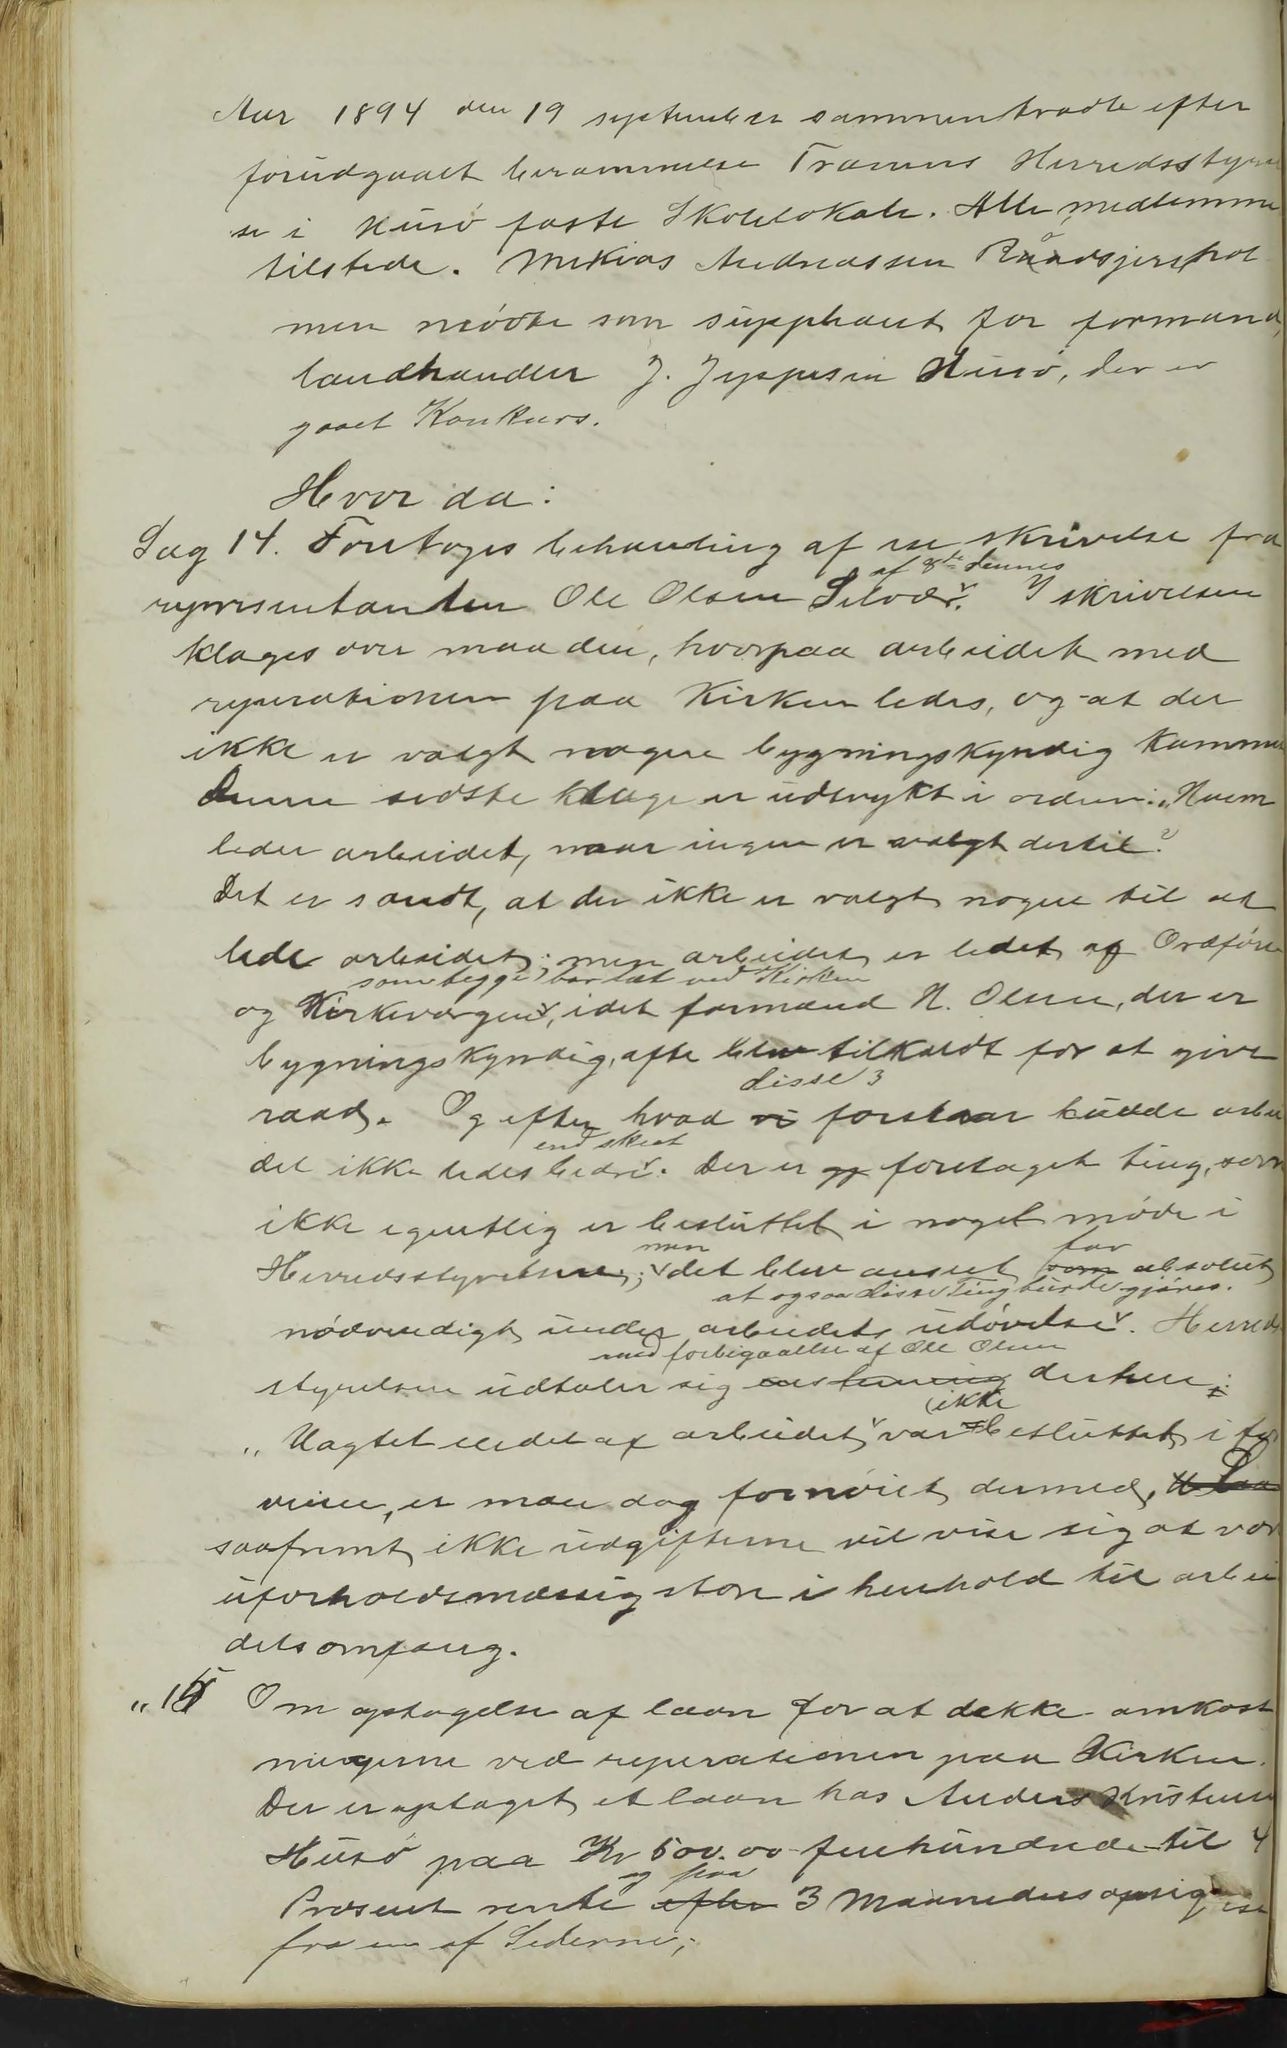 Aar 1894 den 19 september sammentraadte efter
forudgaaet berammelse Trænens Herredsstyrel
se i Husö faste Skolelokale. Alle medlemme
tilstede. Mekias Andreassen Raadsjershol
men mödte som supphant for formand,
landhandler J. Jeppesen Husö, der er
gaaet Konkurs.
Hvor da:
Sag 14. Foretoges behandling af en skrivelse fra
af 8de dennes
representanten Ole Olsen Selvær. I skrivelsen
klages over maaden, hvorpaa arbeidet med
reperationen paa Kirken ledes, og at der
ikke er valgt nogen bygningskyndig Komme
Denne sidste klage er udtrykt i ordene: "Hvem
leder arbeidet, naar ingen er valgt dertil?
Det er sandt, at der ikke er valgt nogen til at
lede arbeidet; men arbeidet er ledet af Ordföre
som begge bor tæt ved Kirken
og Kirkeværgen, idet formand N. Olsen, der er
bygningskyndig, ofte blev tilkaldt for at give
disse
raad. Og efter hvad vi forstaar kunde arbei
end skeet
det ikke ledes bedre. Der er og foretaget ting, som
ikke egentlig er besluttet i noget möde i
men for
Herredsstyrelsen; det blev anseet som absolut
at ogsaa disse Ting burde gjöres.
nödvendigt under arbeidets udövelse. Herreds
med forbigaaelse af Ole Olsen
styrelsen udtaler sig enstemmig derhen:
ikke
"Uagtet endel af arbeidet var besluttet i for
veien, er man dog fornöiet dermed,
saafremt ikke udgifterne vil vise sig at vær
uforholdsmæssig store i henhold til arbei
dets omfang.
" 15 Om optagelse af laan for at dekke omkost
ningerne ved reperationen paa Kirken.
Der er optaget et laan hos Anders Kristensen
Husö paa Kr 500.00 femhundrede til 4
og paa
Prosent rente efter 3 Maaneders opsigelse
fra en af Siderne;